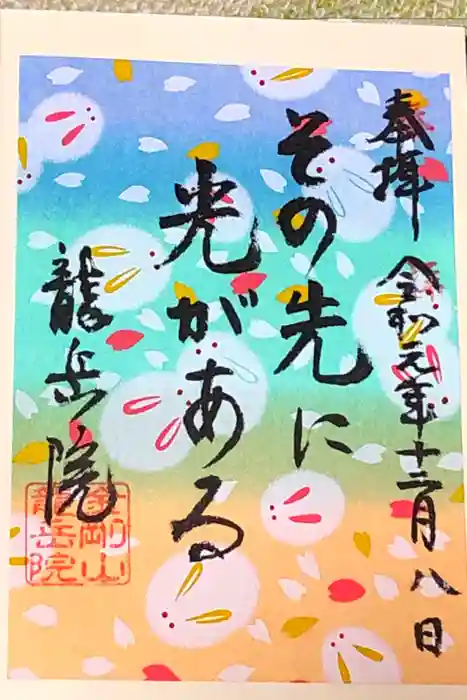 奉拝 令和元年十二月八日
その先に
光がある
龍岳院
金剛山
龍岳院